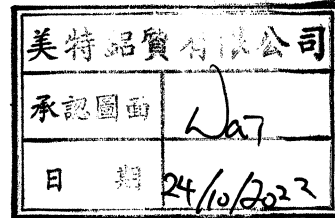 美特品質有限公司
承認圖面
日期 24/10/2022